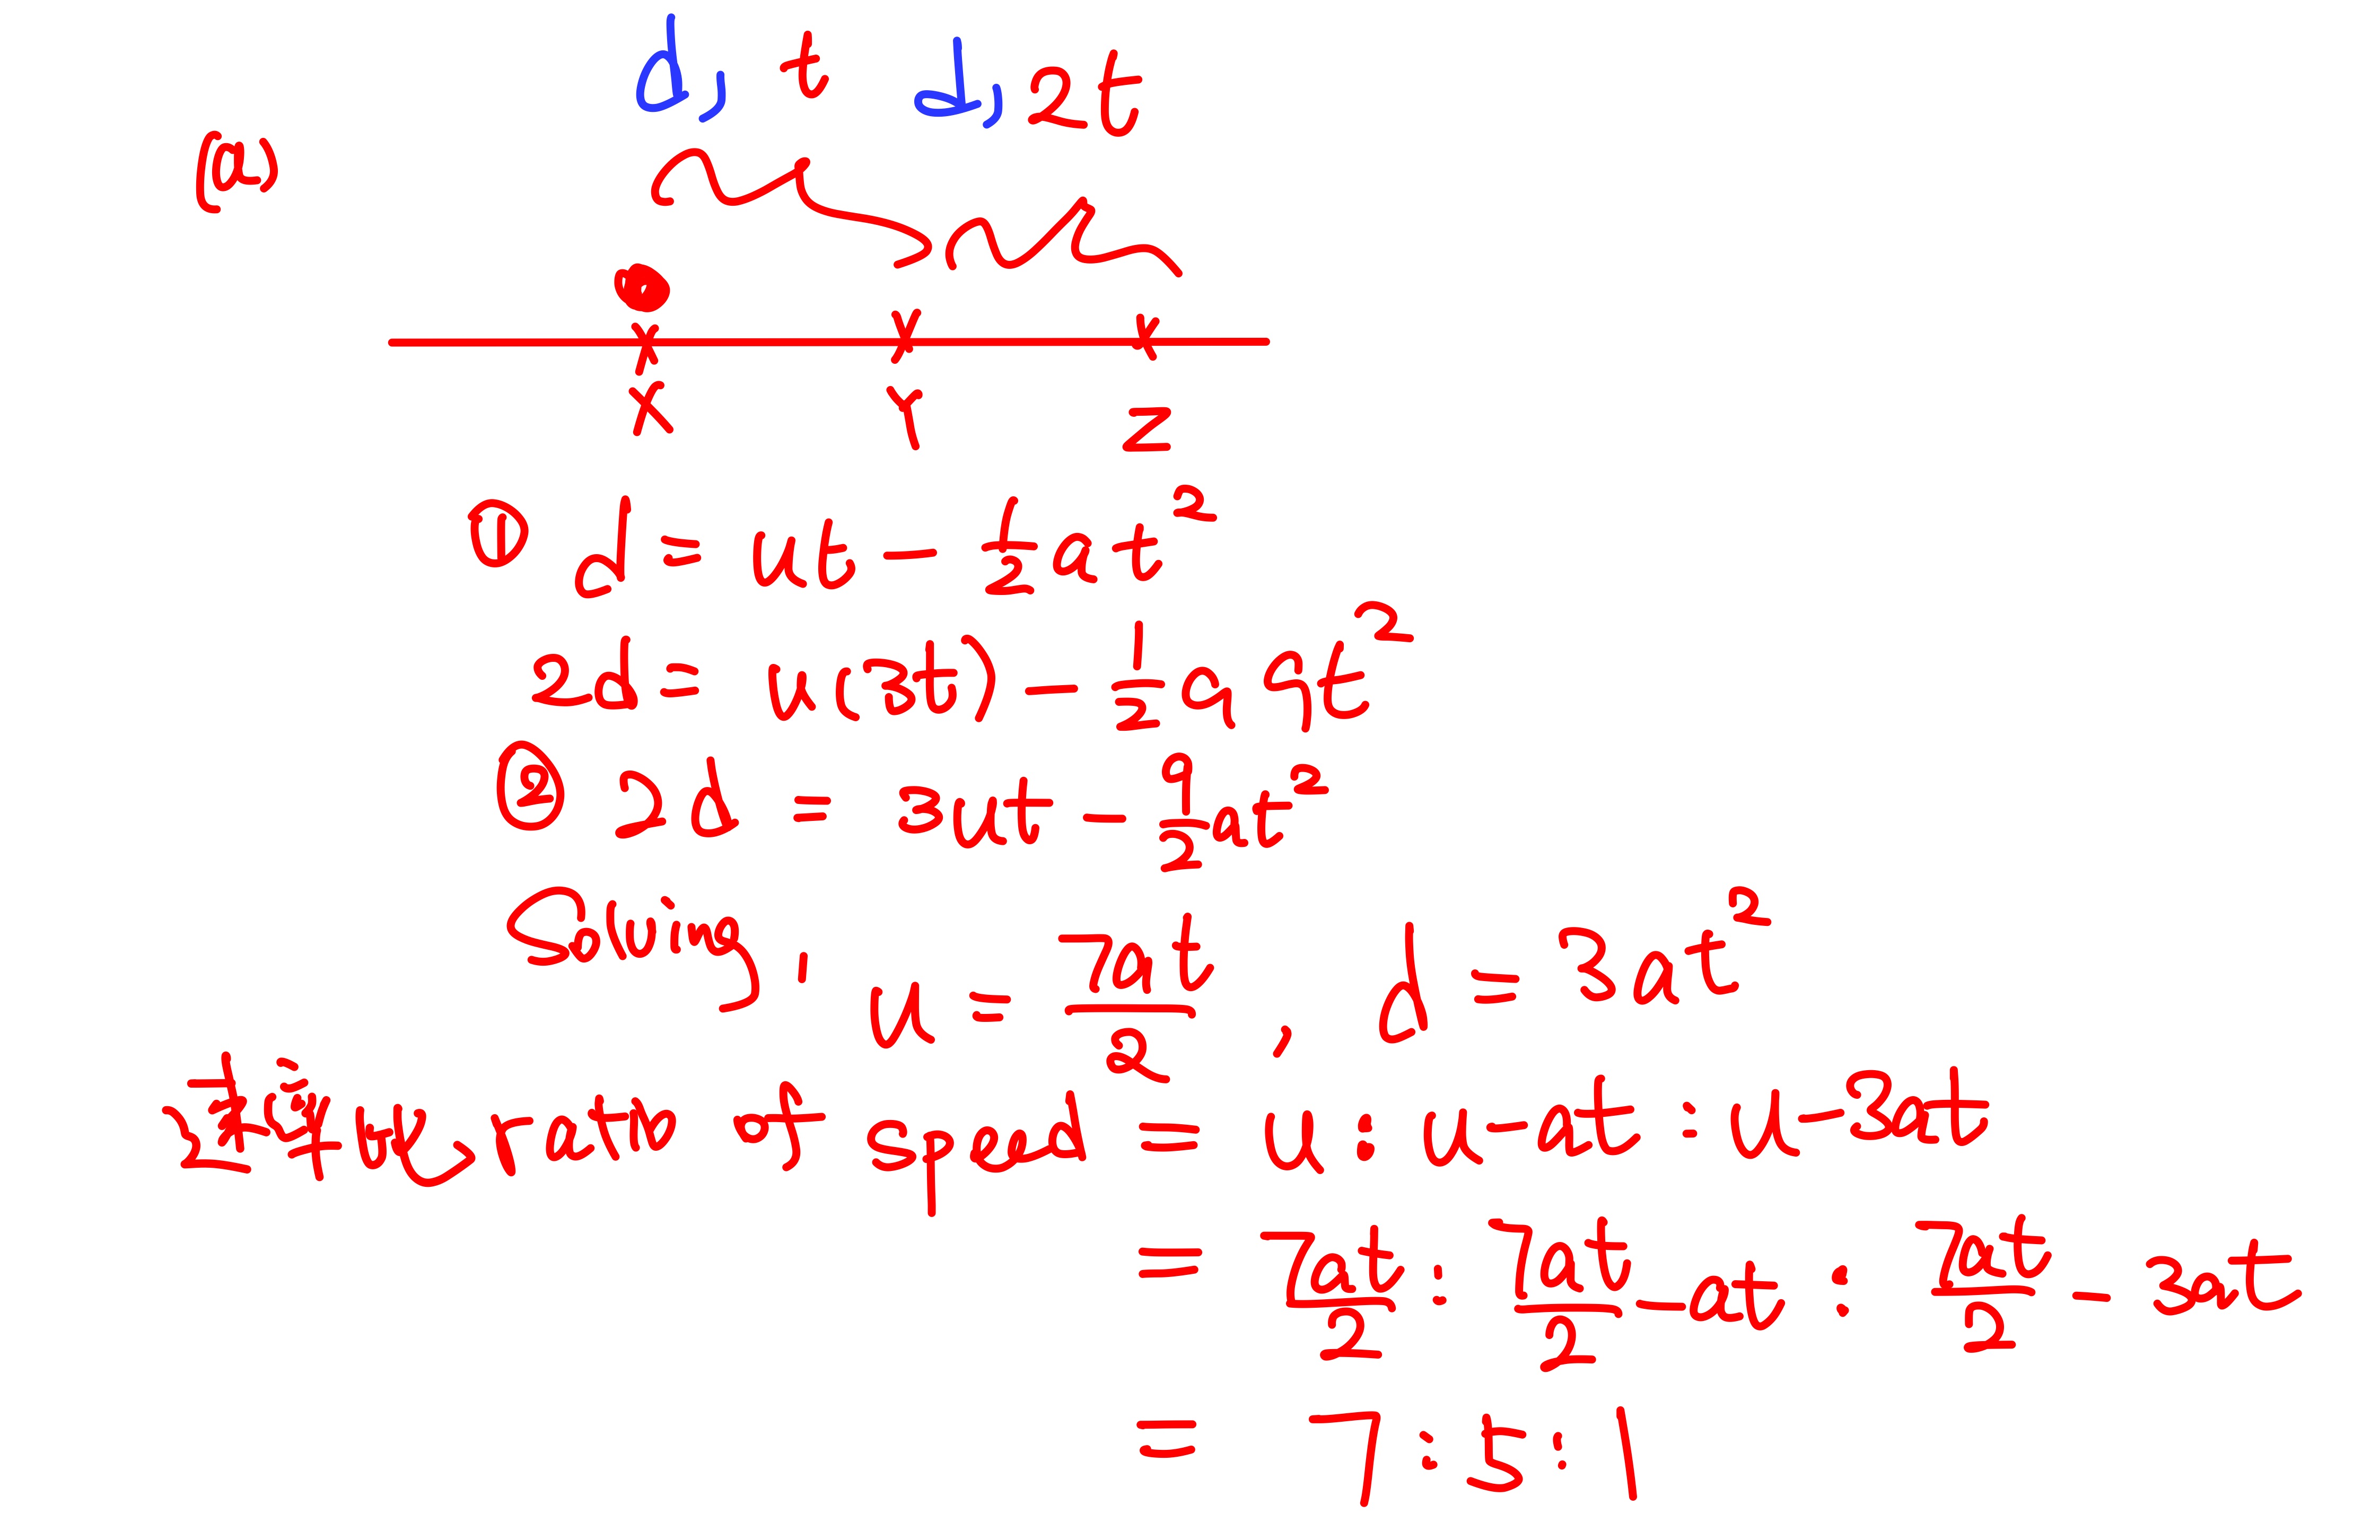 d, t d, 2t
(a)
X Y Z
① d = ut - 1/2 at²
2d = u(3t) - 1/2 a 9t²
② 2d = 3ut - 9/2 at²
Solving, u = 7at/2 , d = 3at²
ratio of speed = u : u-at : u-3at
= 7at/2 : 7at/2 - at : 7at/2 - 3at
= 7 : 5 : 1